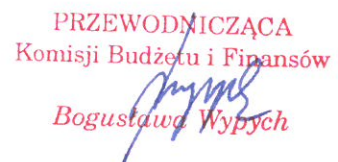 PRZEWODNICZĄCA
Komisji Budżetu i Finansów
Bogusława Wypych